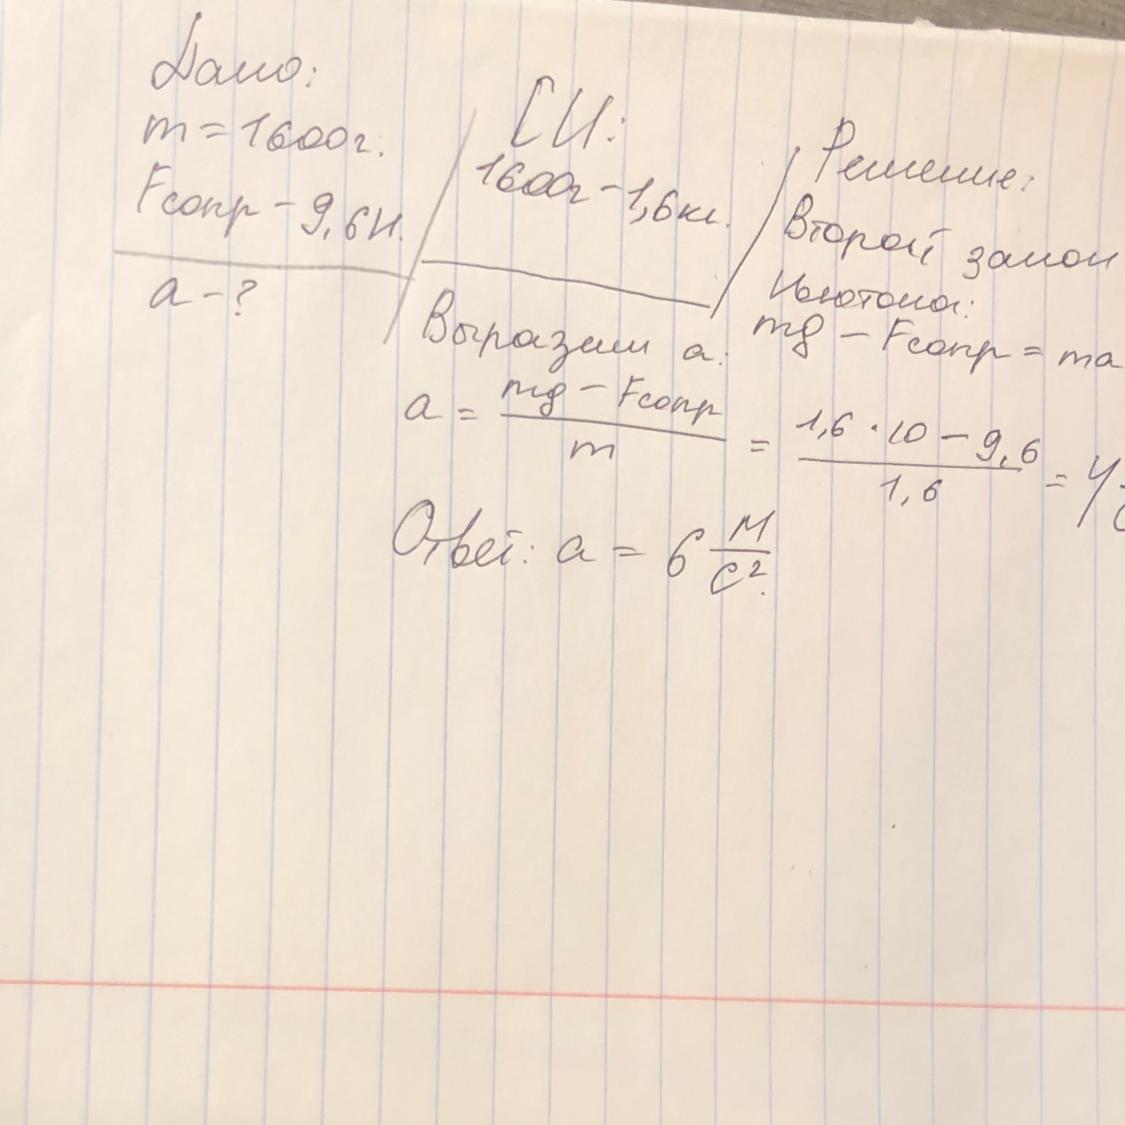 Дано:
m = 1600г.
Fсопр – 9,6Н.
a – ?
СИ:
1600г – 1,6кг.
Решение:
Второй закон
Ньютона:
mg – Fсопр = ma
Выразим a:
a = mg – Fсопр / m = 1,6 · 10 – 9,6 / 1,6 = 4
Ответ: a = 6 м/с².